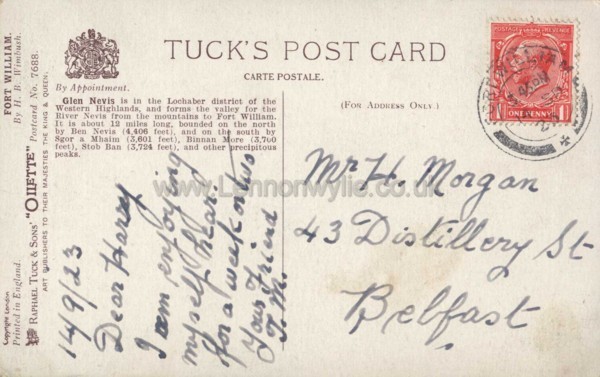 FORT WILLIAM.
By H. B. Wimbush.
"OILETTE" Postcard No. 7688.
RAPHAEL TUCK & SONS'
ART PUBLISHERS TO THEIR MAJESTIES THE KING & QUEEN.
Printed in England.
Copyright London
By Appointment.
TUCK'S POST CARD
CARTE POSTALE.
(FOR ADDRESS ONLY.)
Glen Nevis is in the Lochaber district of the
Western Highlands, and forms the valley for the
River Nevis from the mountains to Fort William.
It is about 12 miles long, bounded on the north
by Ben Nevis (4,406 feet), and on the south by
Sgor a Mhaim (3,601 feet), Binnan More (3,700
feet), Stob Ban (3,724 feet), and other precipitous
peaks.
14/9/23
Dear Harry
I am enjoying
myself here
for a week or two
Your Friend
ONE PENNY
Mr H. Morgan
43 Distillery St
Belfast
www.Lennonwylie.co.uk